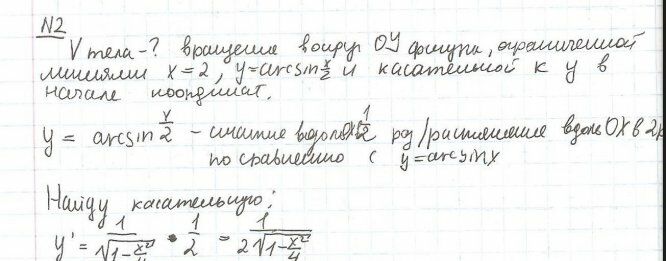 N2
V тела-? вращение вокруг OY фигуры, ограниченной
линиями x=2, y=arcsin x/2 и касательной к y в
начале координат.
y = arcsin x/2 - сжатие вдоль OX 1/2 раз/растяжение вдоль OX в 2р
по сравнению с y=arcsinx
Найду касательную:
y' = 1/√(1-x²/4) • 1/2 = 1/(2√(1-x²/4))